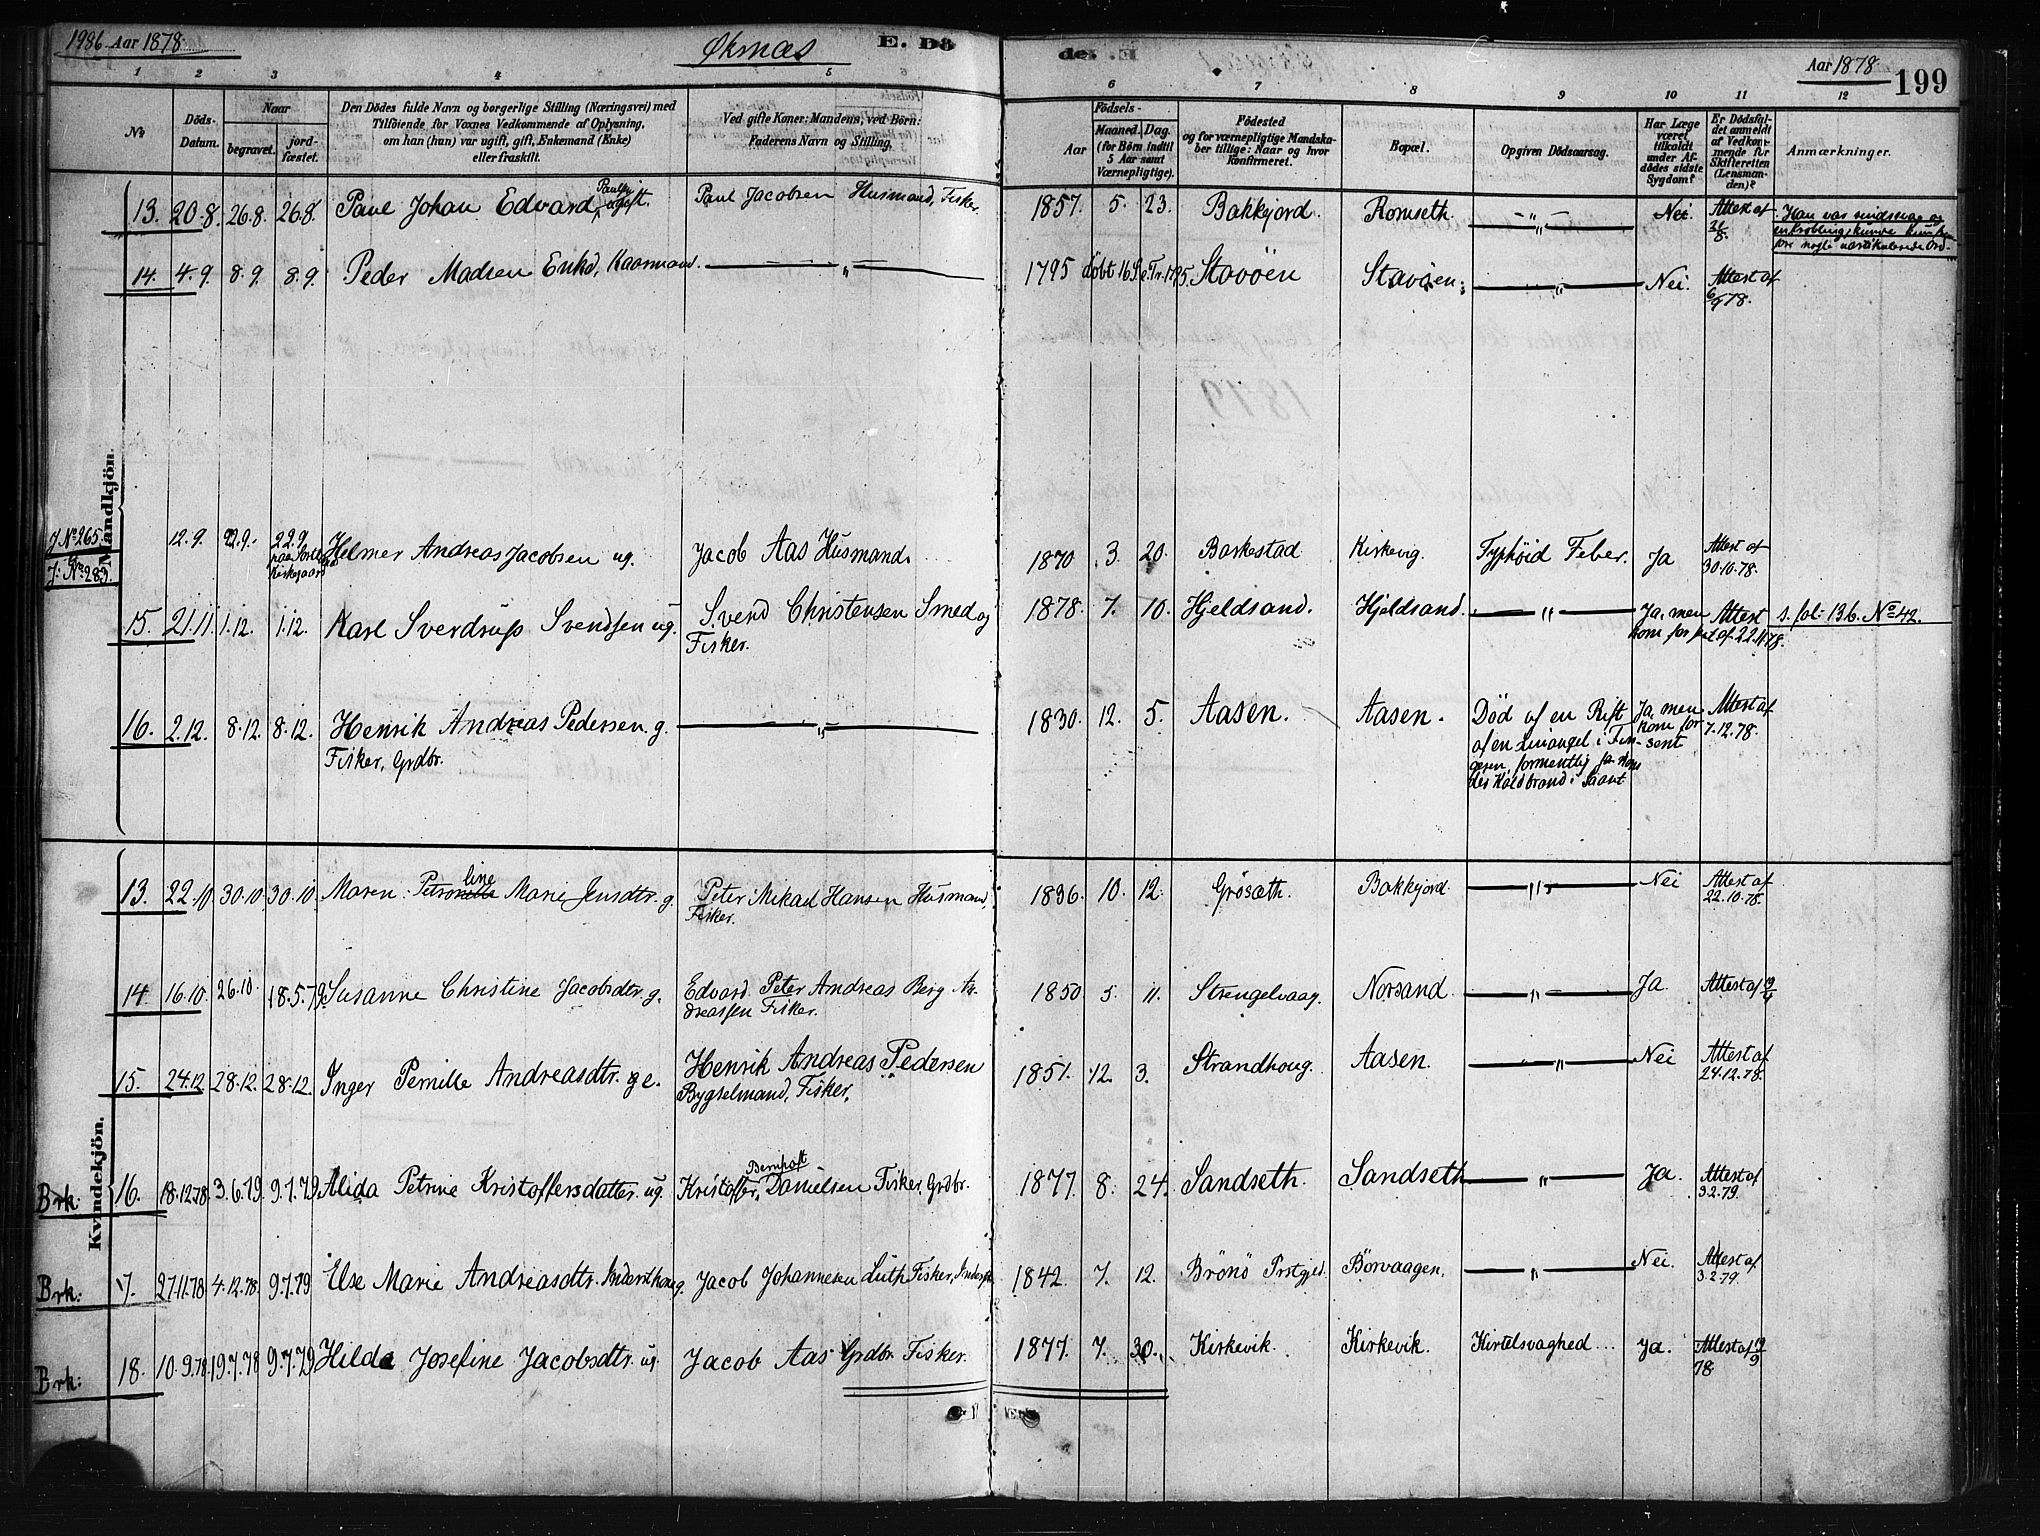 1986 Aar 1878 Øksnæs E. Dö de. Aar 1878 199
1 2 3 4 5 6 7 8 9 10 11 12
No Döds-Datum. Naar begravet. jord-fæstet. Den Dödes fulde Navn og borgerlige Stilling (Næringsvei) med Tilföiende for Voxnes Vedkommende af Oplysning, om han (hun) var ugift, gift, Enkemand (Enke) eller fraskilt. Ved gifte Koner: Mandens, ved Börn: Faderens Navn og Stilling. Födsels- Aar Maaned. Dag. (for Börn indtil 5 Aar samt Værnepligtige). Födested og for værnepligtige Mandskaber tillige: Naar og hvor Konfirmeret. Bopæl. Opgiven Dödsaarsag. Har Læge været tilkaldt under Afdödes sidste Sygdom? Er Dödsfaldet anmeldt af Vedkommende for Skifteretten (Lensmanden)? Anmærkninger.
Mandkjön.
13. 20.8. 26.8. 26.8. Paul Johan Edvard ugift. Paul Jacobsen Husmand, Fisker. 1857. 5. 23. Bakkejord. Romseth. — " — Nei. Attest af Han var sindssvag og
14. 4.9. 8.9. 8.9. Peder Madsen Enkd, Kaarmand. — " — 1795 døbt 16 S. e. Tr. 1795. Stavøen Stavøen. — " — Nei. Attest af 6/9 78.
J No 265. J: No 283. 12.9. 22.9. 22.9. Kirkegaard Helmer Andreas Jacobsen ug. Jacob Aas Husmand. 1870 3. 20. Barkestad Kirkevig. Typhöid Feber. Ja Attest af 30.10.78.
15. 21.11. 1.12. 1.12. Karl Sverdrup Svendsen ug. Svend Christensen Smed og Fisker. 1878. 7. 10. Hjeldsand. Hjeldsand. — " — Ja, men kom for Attest af 22.11.78. s. fol: 136. No 42.
16. 2.12. 8.12. 8.12. Henrik Andreas Pedersen. g. Fisker, Grdbr. — " — 1830. 12. 5. Aasen. Aasen. Död af en Rift af en i Fingeren, formentlig Koldbrand i Saaret Ja, men kom for sent Attest af 7.12.78.
Kvindekjön.
13. 22.10. 30.10. 30.10. Maren Petroline Marie Jensdtr. g. Peter Mikael Hansen Husmand, Fisker. 1836. 10. 12. Grösæth. Bakkejord. — " — Nei Attest af 22.10.78.
14. 16.10. 26.10. 18.5.79. Susanne Christine Jacobsdtr. g. Edvard Peter Andreas Berg Andreassen Fisker. 1850 5. 11. Strengelvaag. Norsand. — " — Ja. Attest af
15. 24.12. 28.12. 28.12. Inger Pernille Andreasdtr. g e. Henrik Andreas Pedersen Bygselmand, Fisker. 1851. 12. 3. Strandhoug. Aasen. — " — Nei Attest af 24.12.78.
Brk: 16. 18.12.78. 3.6.79. 9.7.79. Alida Petrine Kristoffersdatter. ug. Kristoffer Bernhoft Danielsen Fisker, Grdbr. 1877. 8. 24. Sandseth. Sandseth — " — Ja. Attest af 3.2.79.
Brk: 17. 27.11.78. 4.12.78. 9.7.79. Else Marie Andreasdtr. g. Jacob Johannesen Luth Fisker, 1842. 7. 12. Brönö Prstgjld. Börvaagen. — " — Nei. Attest af 3.2.79.
Brk: 18. 10.9.78. 19.7.78. 9.7.79. Hilda Josefine Jacobsdtr. ug. Jacob Aas Grdbr. Fisker. 1877. 7. 30. Kirkevik. Kirkevik. Kirtelsvaghed... Ja. Attest af 78